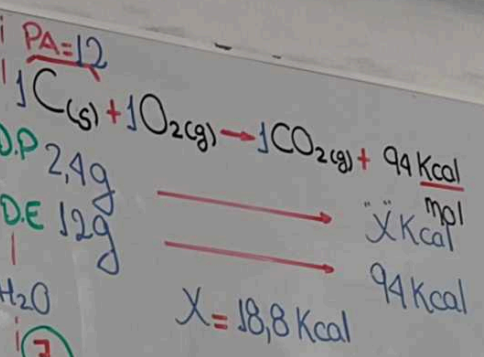 PA=12
1C(s)+1O2(g)→1CO2(g)+ 94 Kcal/mol
D.P 2,4g → "X" Kcal
D.E 12g → 94 Kcal
H2O
X=18,8 Kcal
7